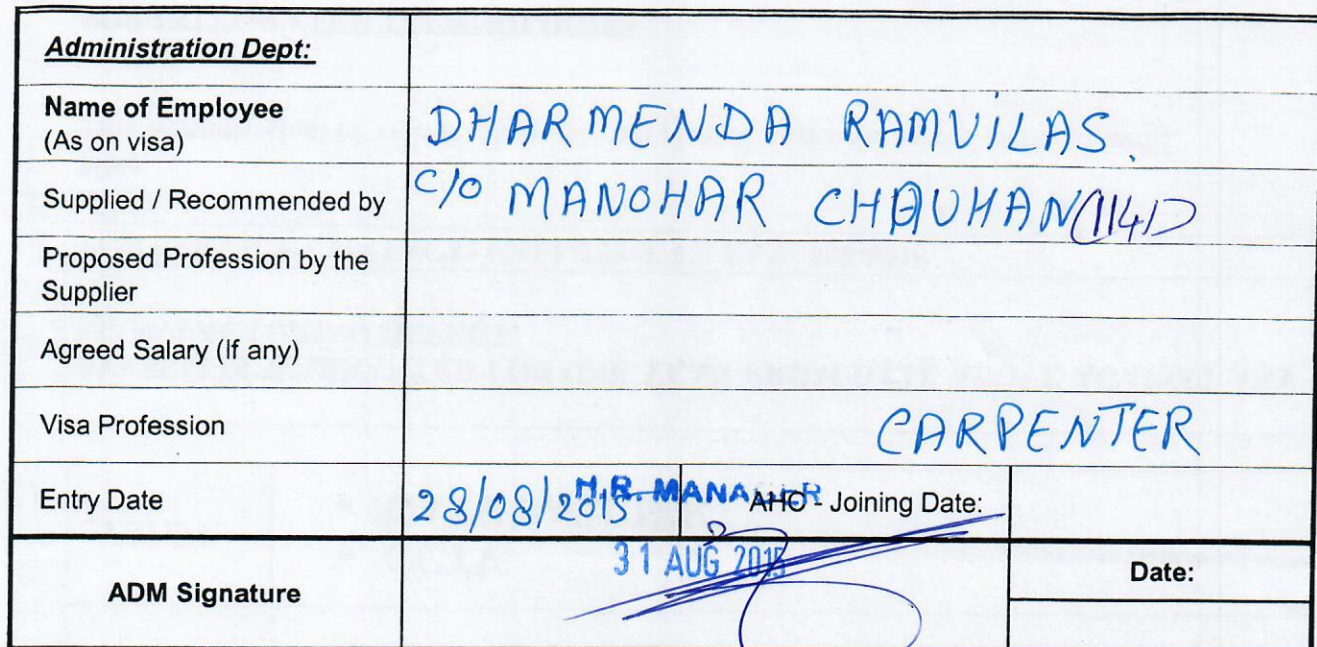 Administration Dept:
Name of Employee
(As on visa)
DHARMENDA RAMVILAS.
Supplied / Recommended by
C/O MANOHAR CHAUHAN (1141)
Proposed Profession by the
Supplier
Agreed Salary (If any)
Visa Profession
CARPENTER
Entry Date
28/08/2015
H.R. MANAGER
AHC - Joining Date:
31 AUG 2015
ADM Signature
Date: